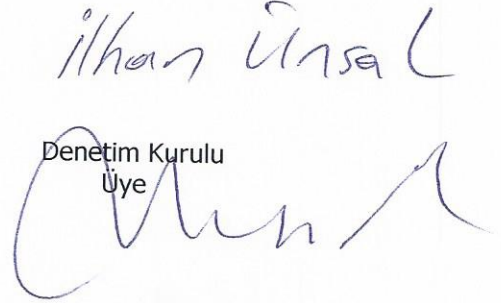 ilhan Ünsal
Denetim Kurulu
Üye